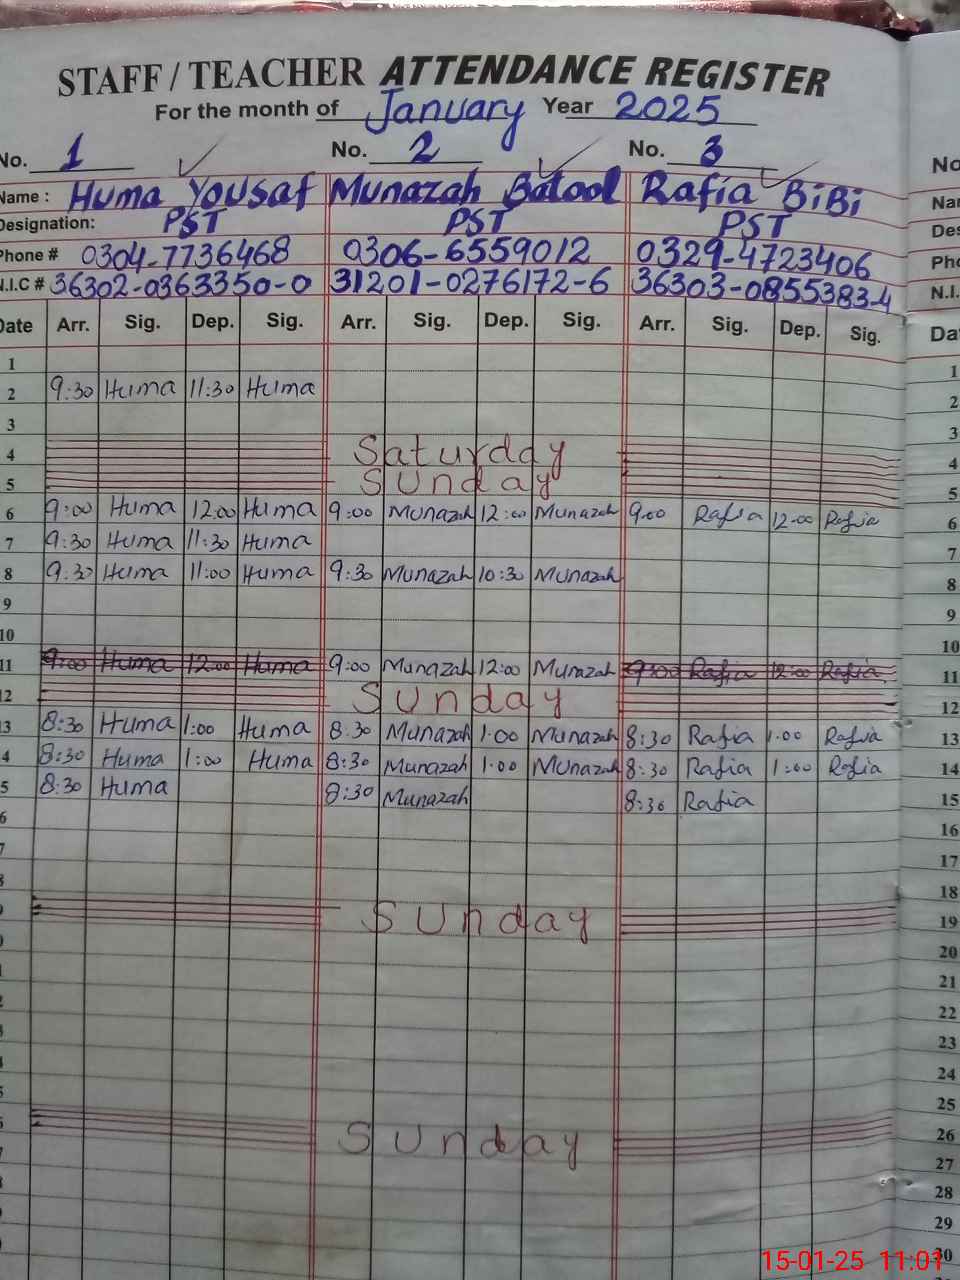 STAFF / TEACHER ATTENDANCE REGISTER
For the month of January Year 2025
No. 1 No. 2 No. 3 No
Name : Huma Yousaf Munazah Batool Rafia BiBi Nar
Designation: PST PST PST Des
Phone # 0304-7736468 0306-6559012 0329-4723406 Pho
N.I.C # 36302-0363350-0 31201-0276172-6 36303-0855383-4 N.I.
Date Arr. Sig. Dep. Sig. Arr. Sig. Dep. Sig. Arr. Sig. Dep. Sig. Dat
1 1
2 9:30 Huma 11:30 Huma 2
3 3
4 Saturday 4
5 Sunday 5
6 9:00 Huma 12:00 Huma 9:00 Munazah 12:00 Munazah 9:00 Rafia 12:00 Rafia 6
7 9:30 Huma 11:30 Huma 7
8 9:30 Huma 11:00 Huma 9:30 Munazah 10:30 Munazah 8
9 9
10 10
11 9:00 Huma 12:00 Huma 9:00 Munazah 12:00 Munazah 9:00 Rafia 12:00 Rafia 11
12 Sunday 12
13 8:30 Huma 1:00 Huma 8:30 Munazah 1:00 Munazah 8:30 Rafia 1:00 Rafia 13
4 8:30 Huma 1:00 Huma 8:30 Munazah 1:00 Munazah 8:30 Rafia 1:00 Rafia 14
5 8:30 Huma 8:30 Munazah 8:30 Rafia 15
6 16
7 17
8 18
Sunday 19
20
21
22
23
24
25
Sunday 26
27
28
29
30
15-01-25 11:01